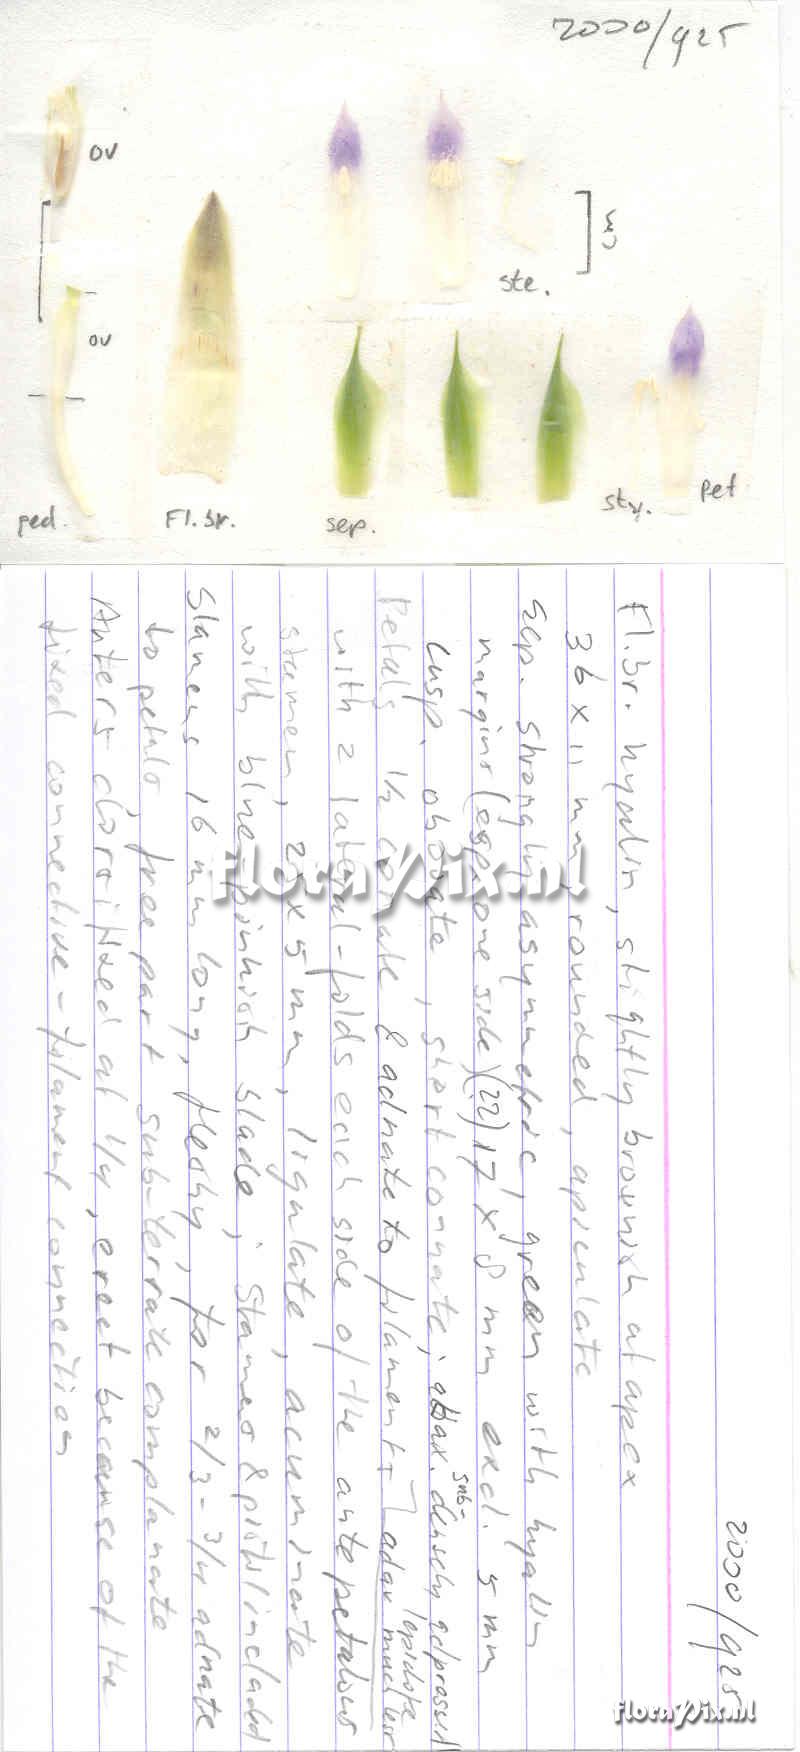 2000/925
ov
ov
cm
ste.
ped.
Fl.br.
sep.
sty.
pet
2000/925
Fl.br. hyalin, slightly brownish at apex
36 x 11 mm, rounded, apiculate
Sep. strongly asymmetric, green with hyalin
margins (esp. one side) (22) 17 x 8 mm excl. 5 mm
cusp. obovate, short connate; abax. sub-densely adpressed lepidote
adax much less
Petals 1/2 connate & adnate to filament
with 2 lateral-folds each side of the antepetalous
stamen, 25 x 5 mm, ligulate, acuminate
with blue pinkish blade; stamens & pistil included
Stamens 16 mm long, fleshy, for 2/3 - 3/4 adnate
to petals, free part sub-terrate complanate
Anters dorsifixed at 1/4, erect because of the
fixed connective-filament connection
floraPix.nl
floraPix.nl